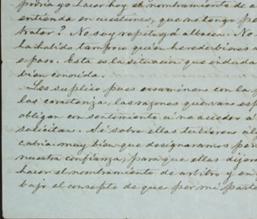 podría yo hacer hoy el nombramiento de a
entienda en cuestiones, que no tengo po
tratar? No soy repito yá albacea. No
ha habido tampoco quien herede bienes a
epaso. Esta es la situacion que es dada
bien conocida.
Les suplico pues examinen con la p
las constancia, las razones que van esp
obligan con sentimiento á no acceder á
solicitan. Si sobre ellas tubieren al
cabria muy bien que designaramos per
nuestra confianza, para que ellas dijera
hacer el nombramiento de arbitro y en
bajo el concepto de que por mi parte